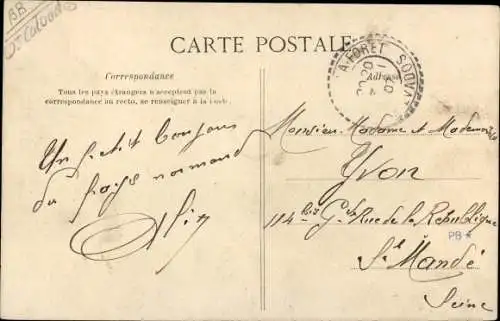 BB
CARTE POSTALE
Correspondance
Tous les pays étrangers n'acceptent pas la
correspondance au recto, se renseigner à la Poste.
Adresse
LA FORET
20-20
Un petit bonjour
du pays normand
Monsieur Madame et Mademoiselle
Yvon
114 bis Gde Rue de la République
PB*
St Mandé
Seine